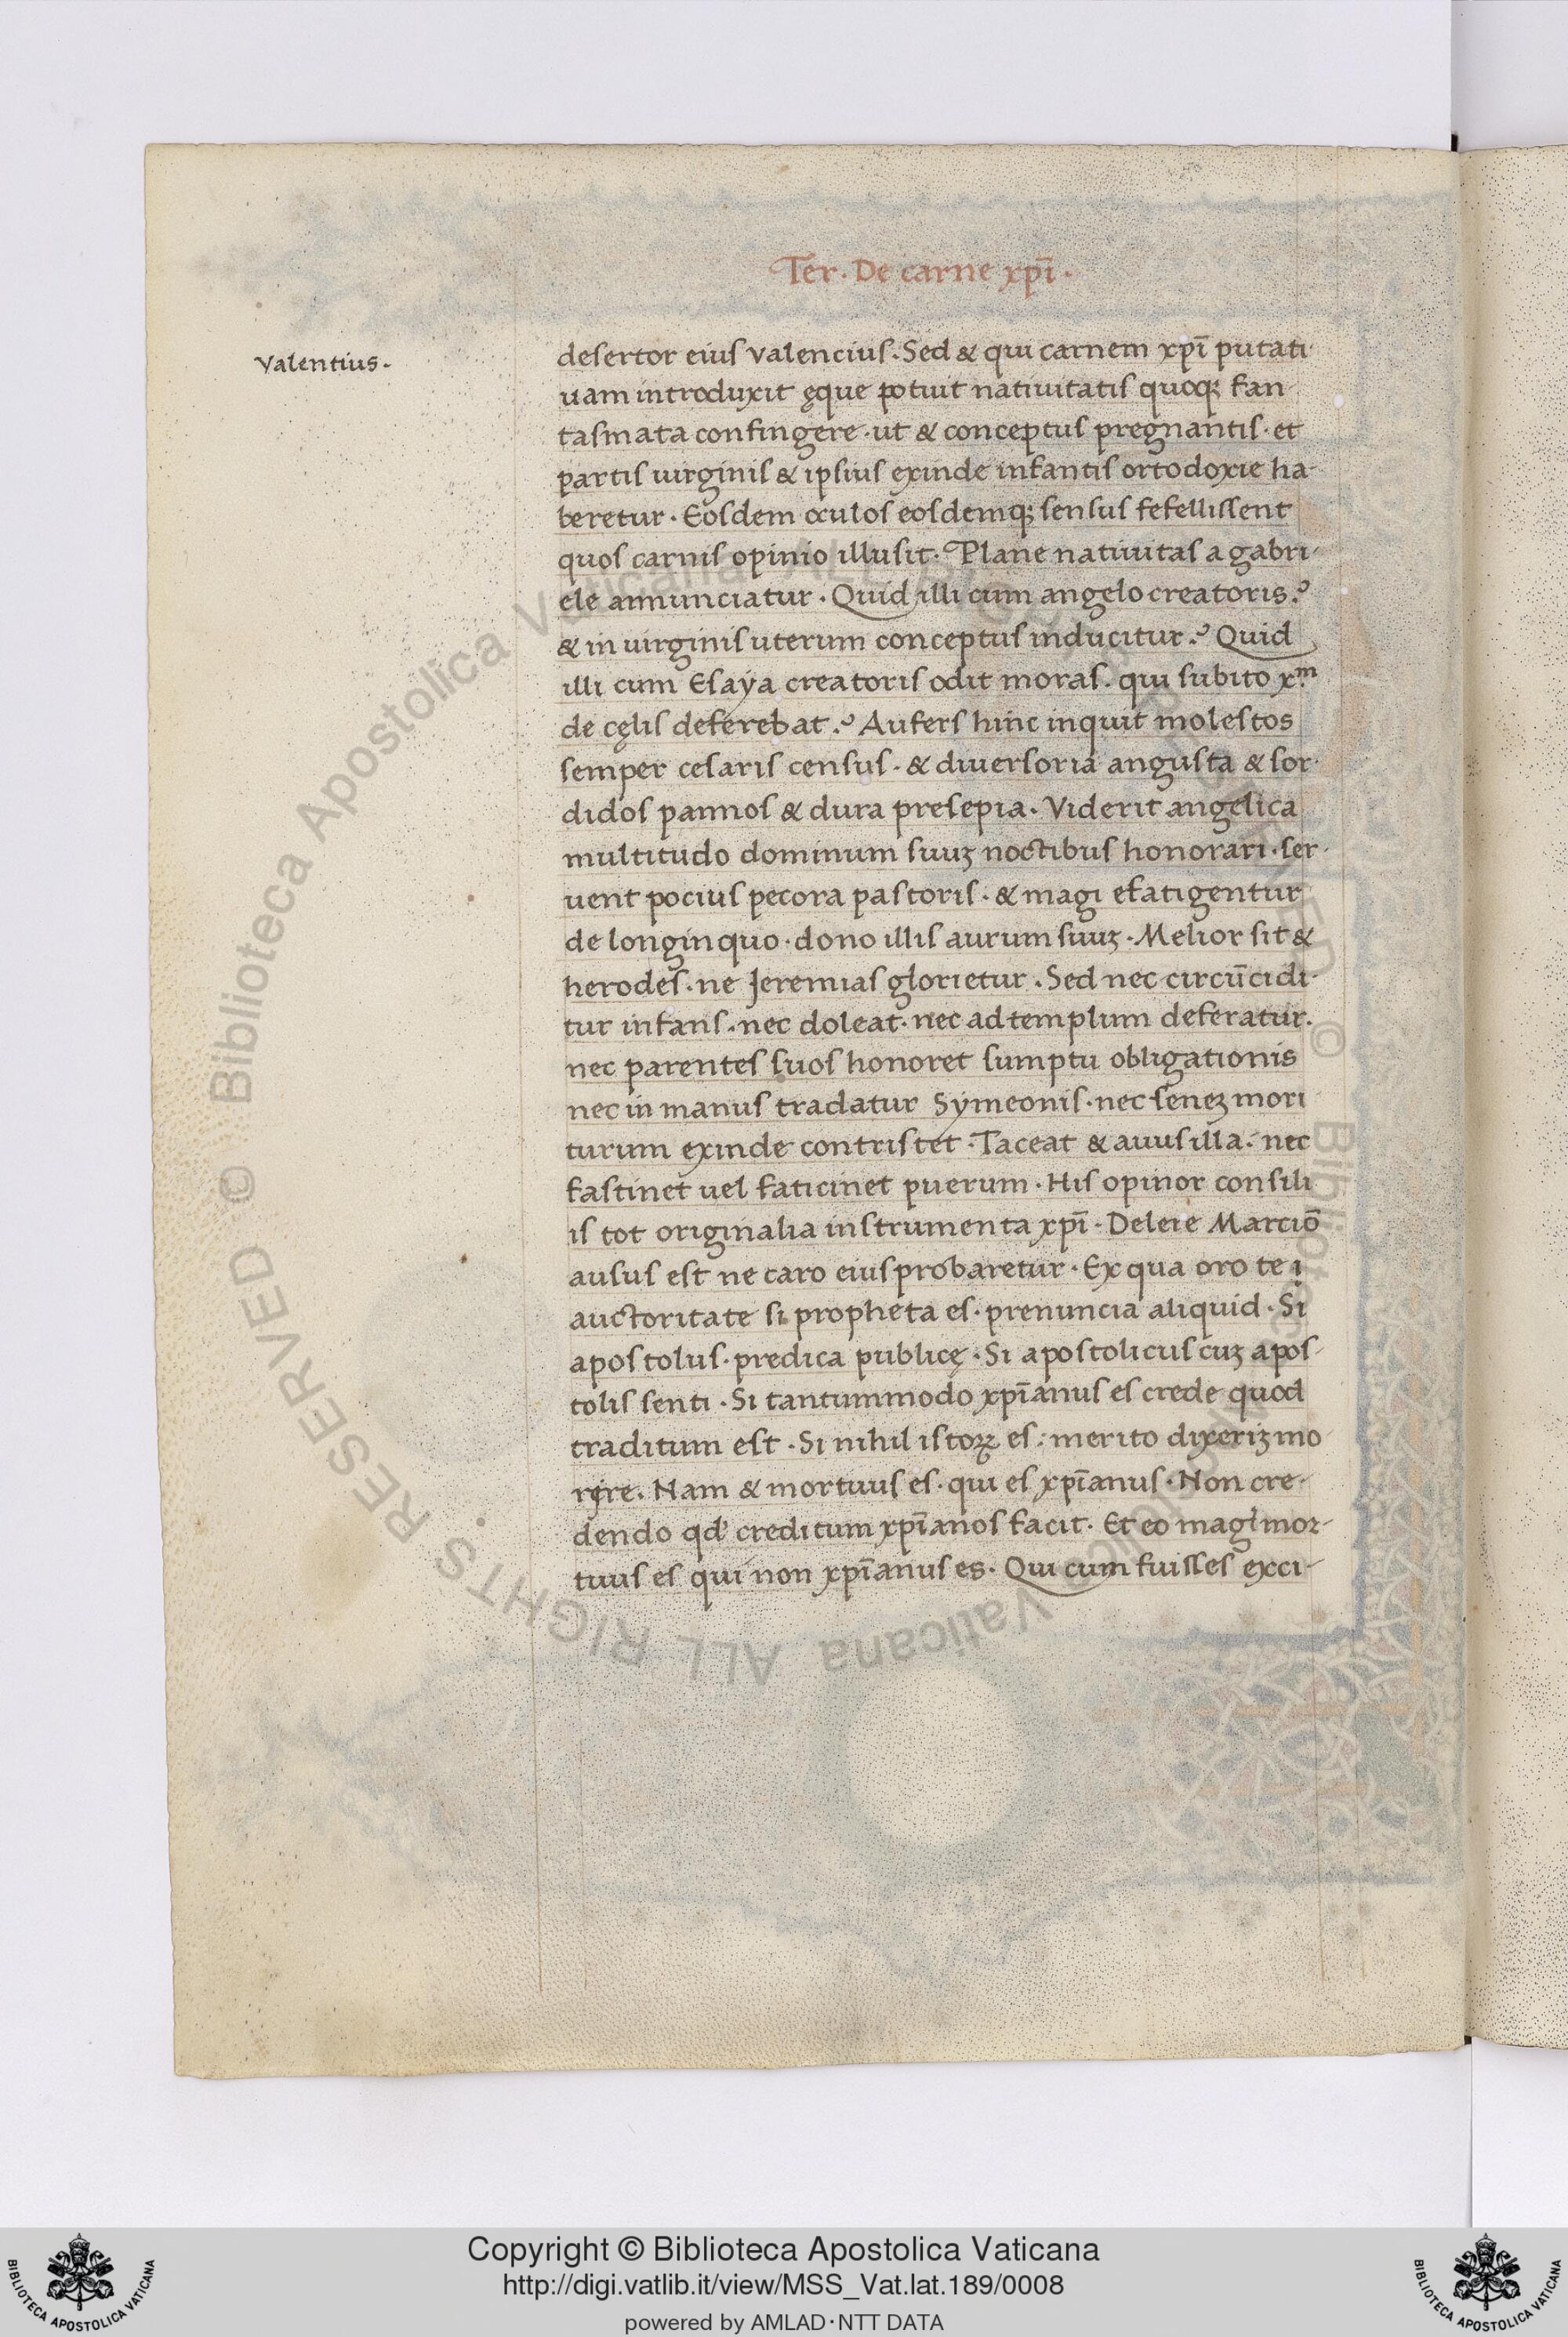 Ter · De carne xp̄i ·
Valentius ·
desertor eius valencius · Sed & qui carnem xp̄i putati-
uam introduxit ęque potuit natiuitatis quoq; fan-
tasmata confingere · ut & conceptus pregnantis · et
partis uirginis & ipsius exinde infantis ortodoxie ha-
beretur · Eosdem oculos eosdemq; sensus fefellissent
quos carnis opinio illusit · Plane natiuitas a gabri-
ele annunciatur · Quid illi cum angelo creatoris ?
& in uirginis uterum conceptus inducitur ? Quid
illi cum Esaÿa creatoris odit moras · qui subito x.ᵐ
de cęlis deferebat ? Aufers hinc inquit molestos
semper cesaris census · & diuersoria angusta & sor-
didos pannos & dura presepia · Viderit angelica
multitudo dominum suuꝫ noctibus honorari · ser-
uent pocius pecora pastoris · & magi efatigentur
de longinquo · dono illis aurum suuꝫ · Melior sit &
herodes · ne Jeremias glorietur · Sed nec circūcidi-
tur infans · nec doleat · nec ad templum deferatur ·
nec parentes suos honoret sumptu obligationis
nec in manus tradatur Symeonis · nec seneꝫ mori-
turum exinde contristet · Taceat & auus illa · nec
fastinet uel faticinet puerum · His opinor consili
is tot originalia instrumenta xp̄i · Delere Marciō
ausus est ne caro eius probaretur · Ex qua oro te i
auctoritate si propheta es · prenuncia aliquid · Si
apostolus · predica publicę · Si apostolicus cuꝫ apos-
tolis senti · Si tantummodo xp̄ianus es crede quod
traditum est · Si nihil istoꝝ es : merito dixeriꝫ mo-
rire · Nam & mortuus es · qui es xp̄ianus · Non cre-
dendo qd' creditum xp̄ianos facit · Et eo magi' moꝛ-
tuus es qui non xp̄ianus es · Qui cum fuisses exci-
Biblioteca Apostolica Vaticana ALL RIGHTS RESERVED ©
Copyright © Biblioteca Apostolica Vaticana
http://digi.vatlib.it/view/MSS_Vat.lat.189/0008
powered by AMLAD · NTT DATA
BIBLIOTECA APOSTOLICA VATICANA
BIBLIOTECA APOSTOLICA VATICANA